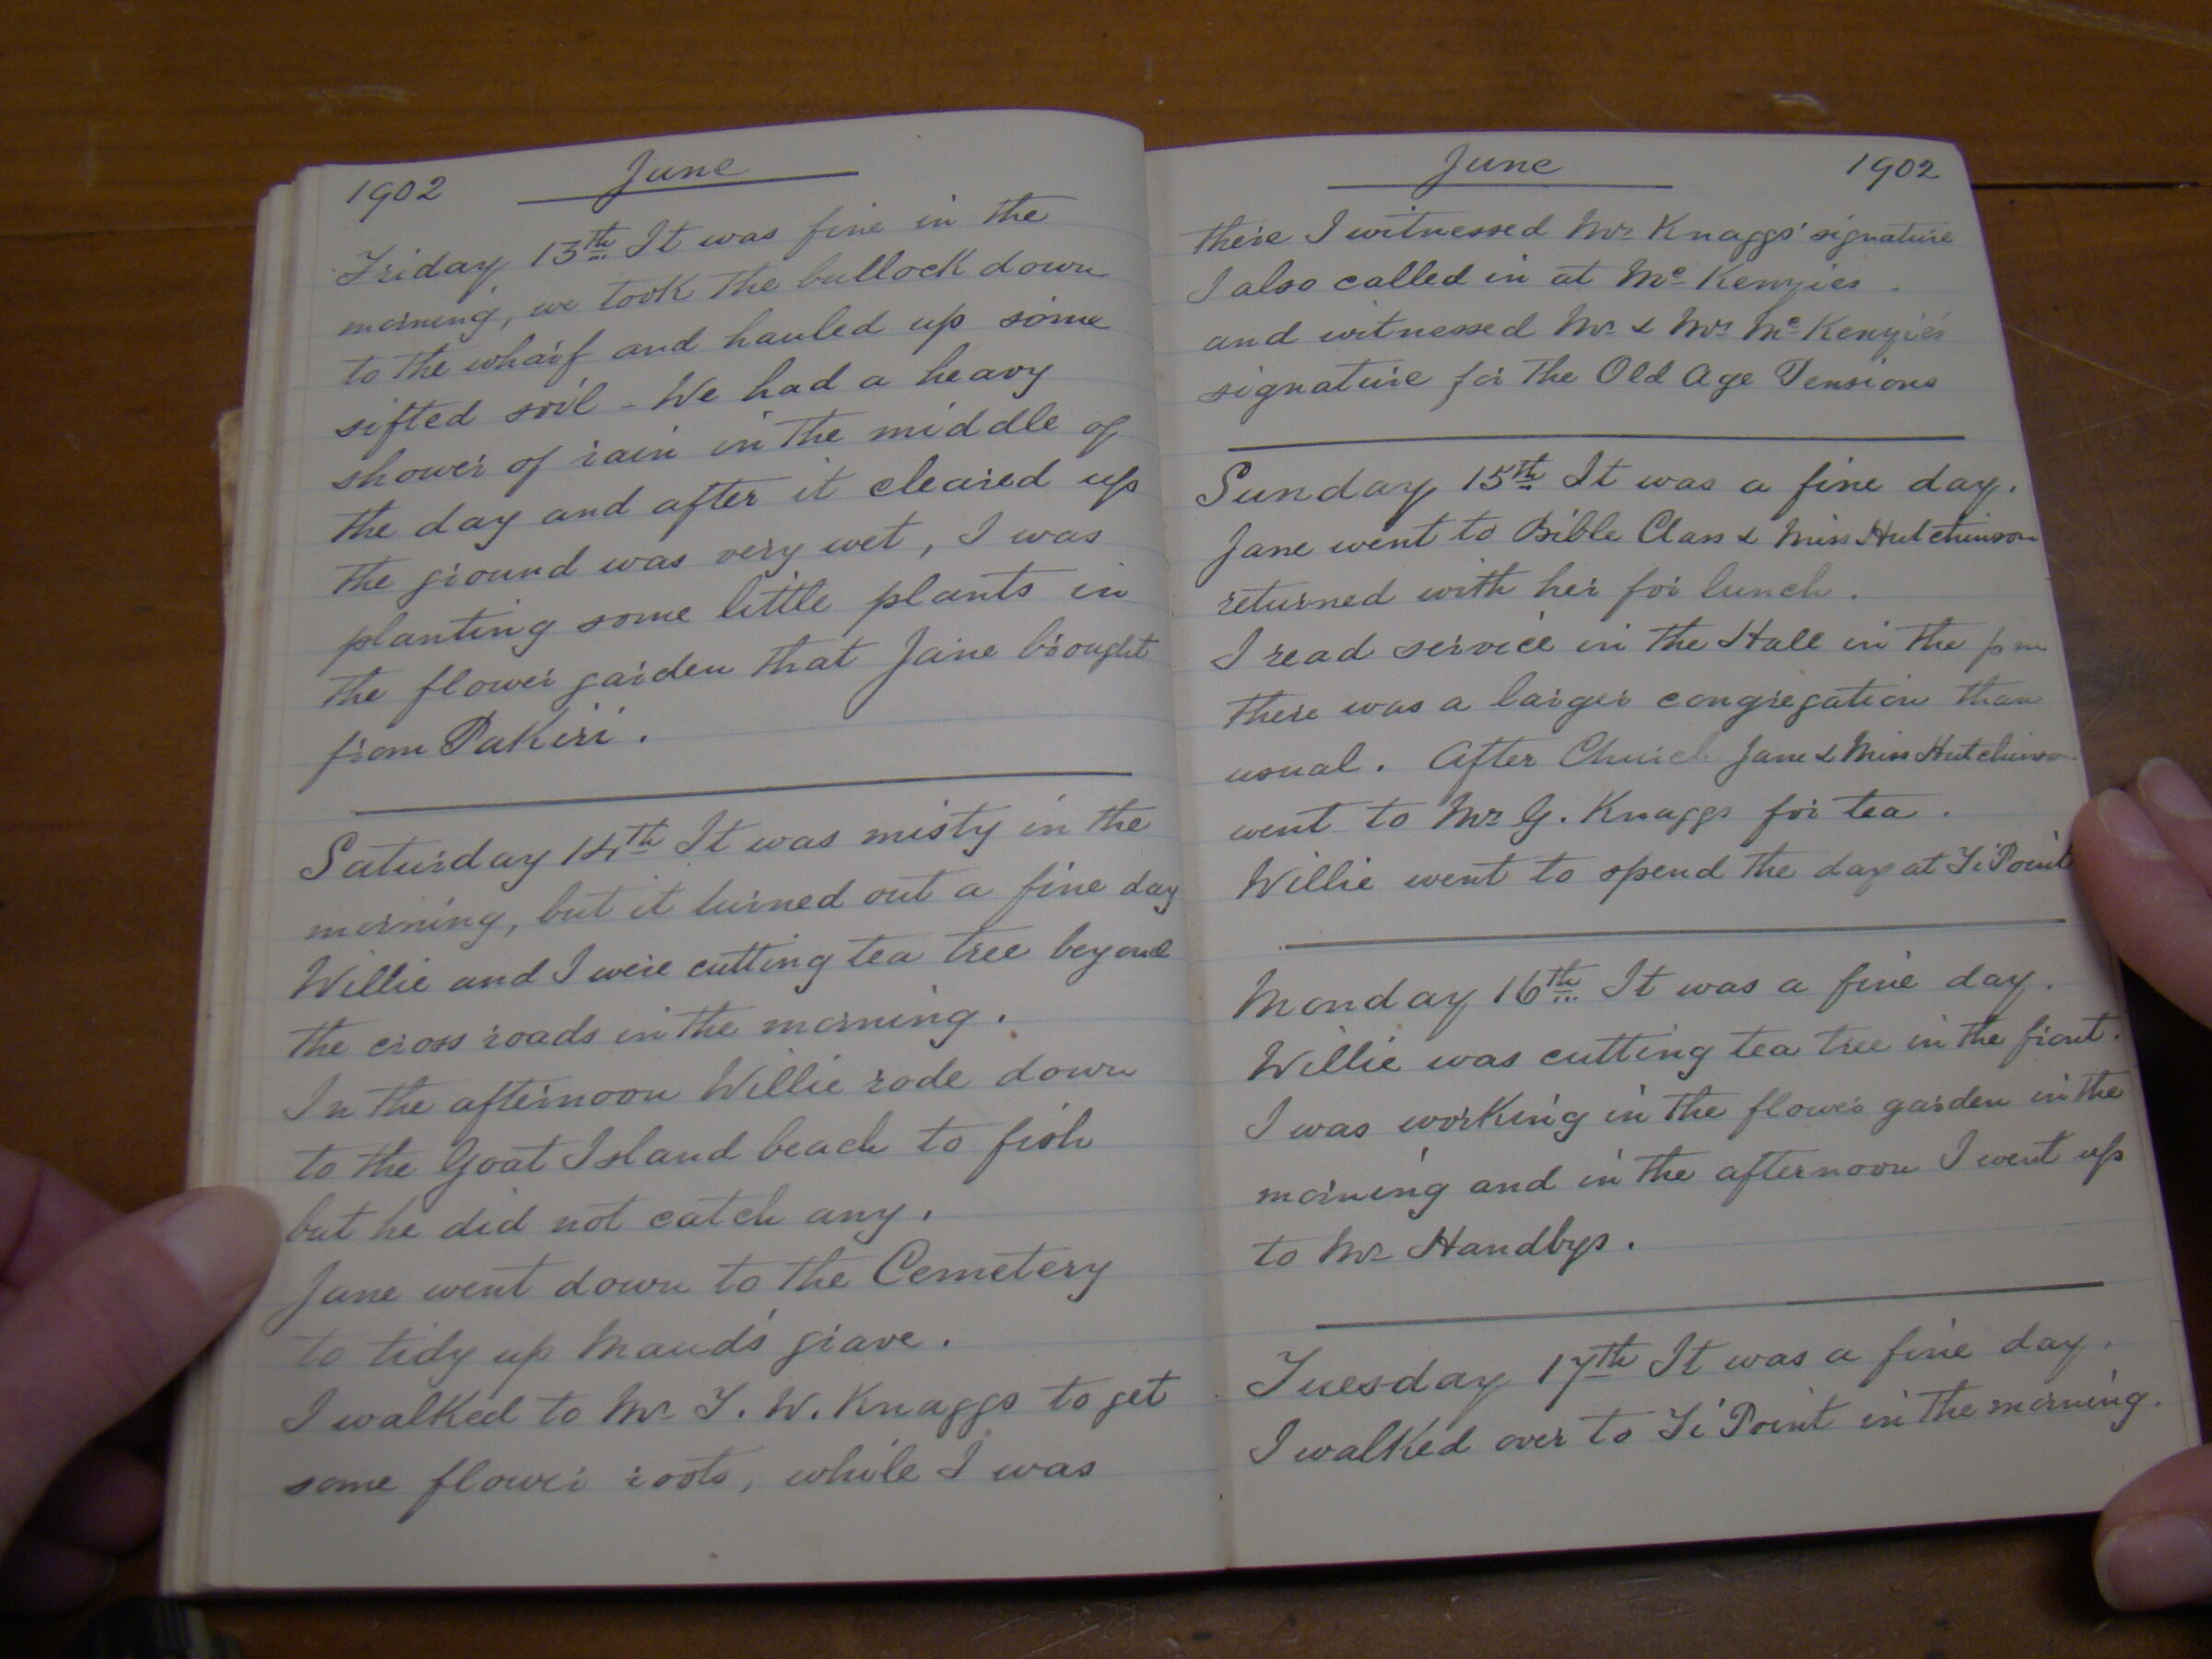 1902 June
Friday 13th It was fine in the
morning, we took the bullock down
to the wharf and hauled up some
sifted soil - We had a heavy
shower of rain in the middle of
the day and after it cleared up
the ground was very wet, I was
planting some little plants in
the flower garden that Jane brought
from Pakiri.
Saturday 14th It was misty in the
morning, but it turned out a fine day
Willie and I were cutting tea tree beyond
the cross roads in the morning.
In the afternoon Willie rode down
to the Goat Island beach to fish
but he did not catch any.
Jane went down to the Cemetery
to tidy up Maud's grave.
I walked to Mr T. W. Knaggs to get
some flower roots, while I was
June 1902
there I witnessed Mr Knaggs' signature
I also called in at Mc Kenzies -
and witnessed Mr & Mrs Mc Kenzie's
signature for the Old Age Pensions
Sunday 15th It was a fine day.
Jane went to Bible Class & Miss Hutchinson
returned with her for lunch.
I read service in the Hall in the pm
there was a larger congregation than
usual. After Church Jane & Miss Hutchinson
went to Mr G. Knaggs for tea.
Willie went to spend the day at Ti Point
Monday 16th It was a fine day.
Willie was cutting tea tree in the front.
I was working in the flower garden in the
morning and in the afternoon I went up
to Mr Handbys.
Tuesday 17th It was a fine day.
I walked over to Ti Point in the morning.